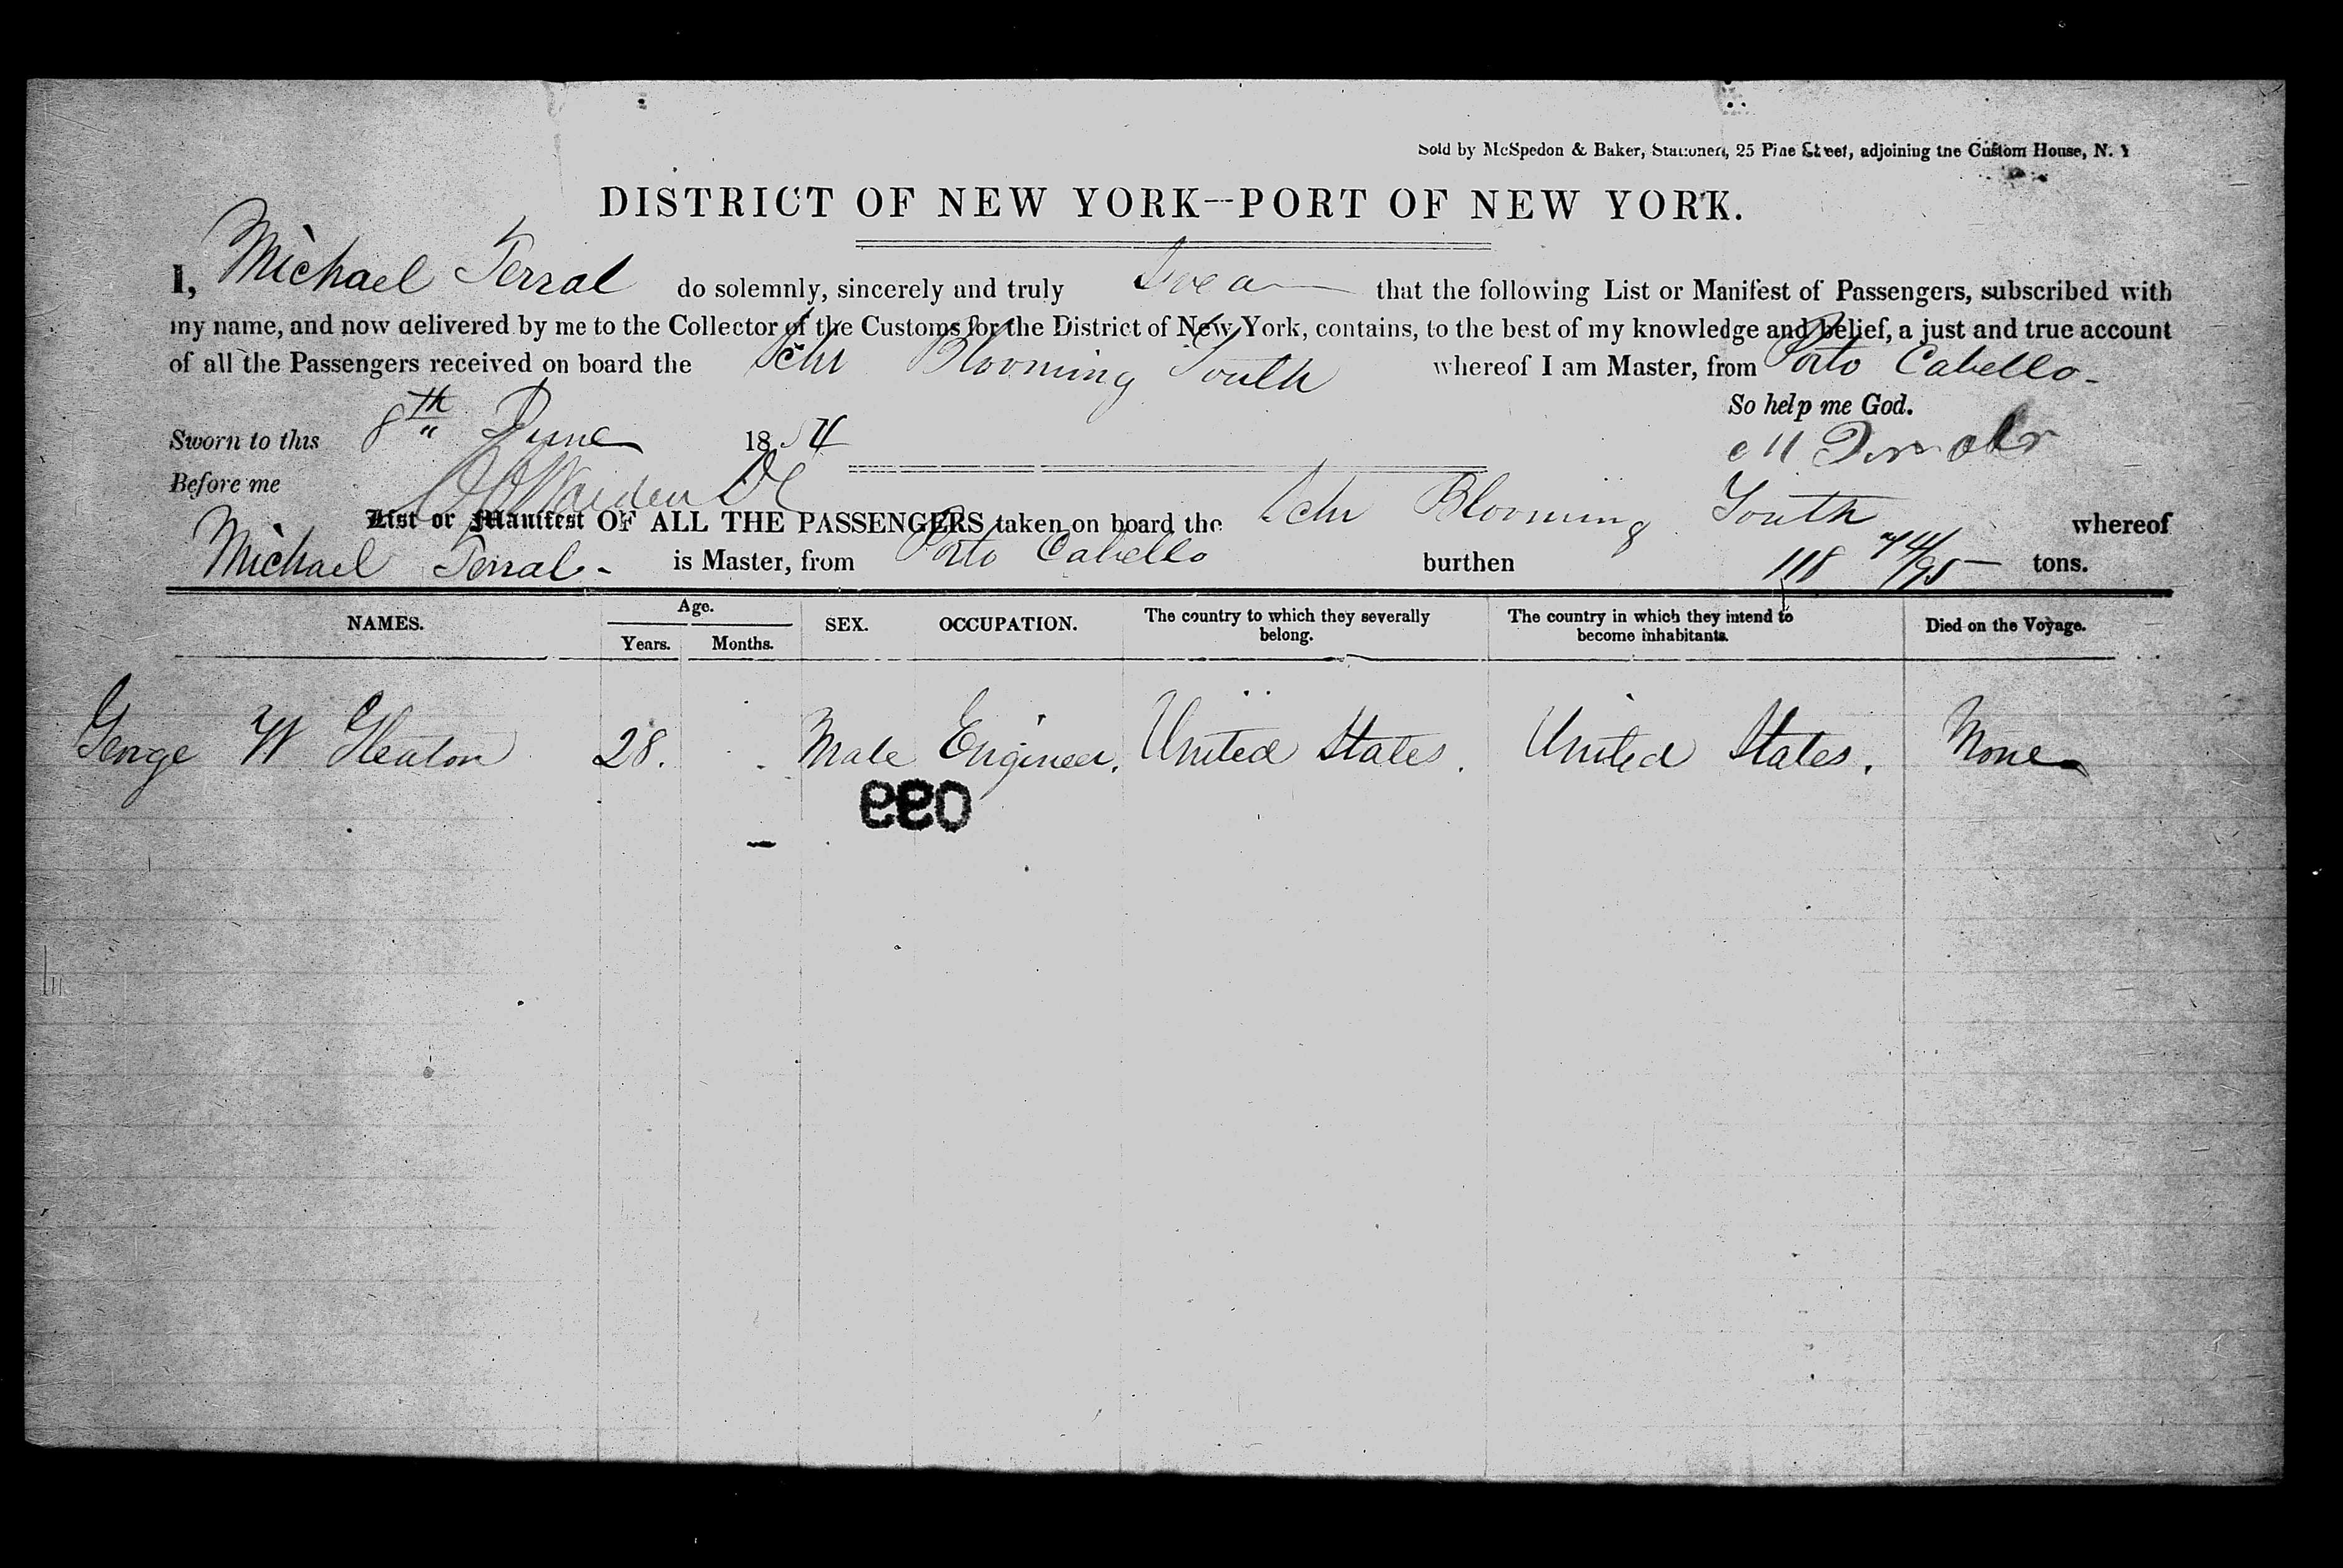 Sold by McSpedon & Baker, Stationers, 25 Pine Street, adjoining the Custom House, N. Y
DISTRICT OF NEW YORK--PORT OF NEW YORK.
I, Michael Ferral do solemnly, sincerely and truly Swear that the following List or Manifest of Passengers, subscribed with
my name, and now delivered by me to the Collector of the Customs for the District of New York, contains, to the best of my knowledge and belief, a just and true account
of all the Passengers received on board the Schr Blooming Youth whereof I am Master, from Porto Cabello-
So help me God.
Sworn to this 8th June 1854
Before me
List or Manifest OF ALL THE PASSENGERS taken on board the Schr Blooming Youth whereof
Michael Ferral - is Master, from Porto Cabello burthen 118 74/95 tons.
NAMES. Age. Years. Months. SEX. OCCUPATION. The country to which they severally belong. The country in which they intend to become inhabitants. Died on the Voyage.
George W Gleaton 28. Male Engineer. United States. United States. None
099